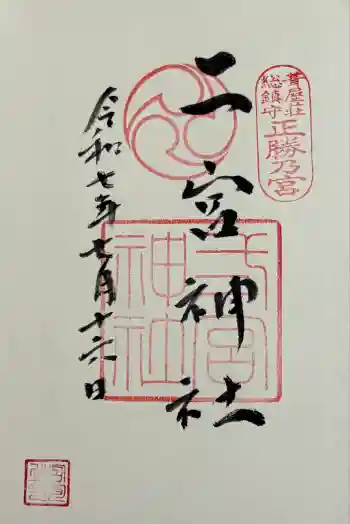 葺屋荘
総鎮守
正勝乃宮
二宮神社
二宮
神社
令和七年七月十六日